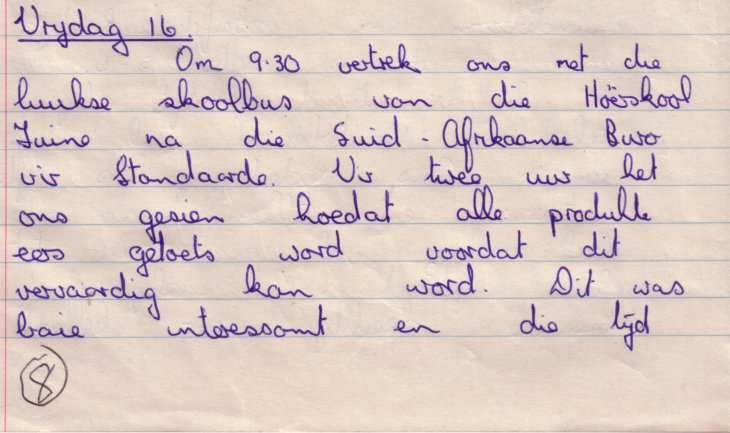 Vrydag 16.
Om 9.30 vertrek ons met die
luukse skoolbus van die Hoërskool
Tuine na die Suid-Afrikaanse Buro
vir Standaarde. Vir twee uur het
ons gesien hoedat alle produkte
eers getoets word voordat dit
vervaardig kan word. Dit was
baie interessant en die tyd
8